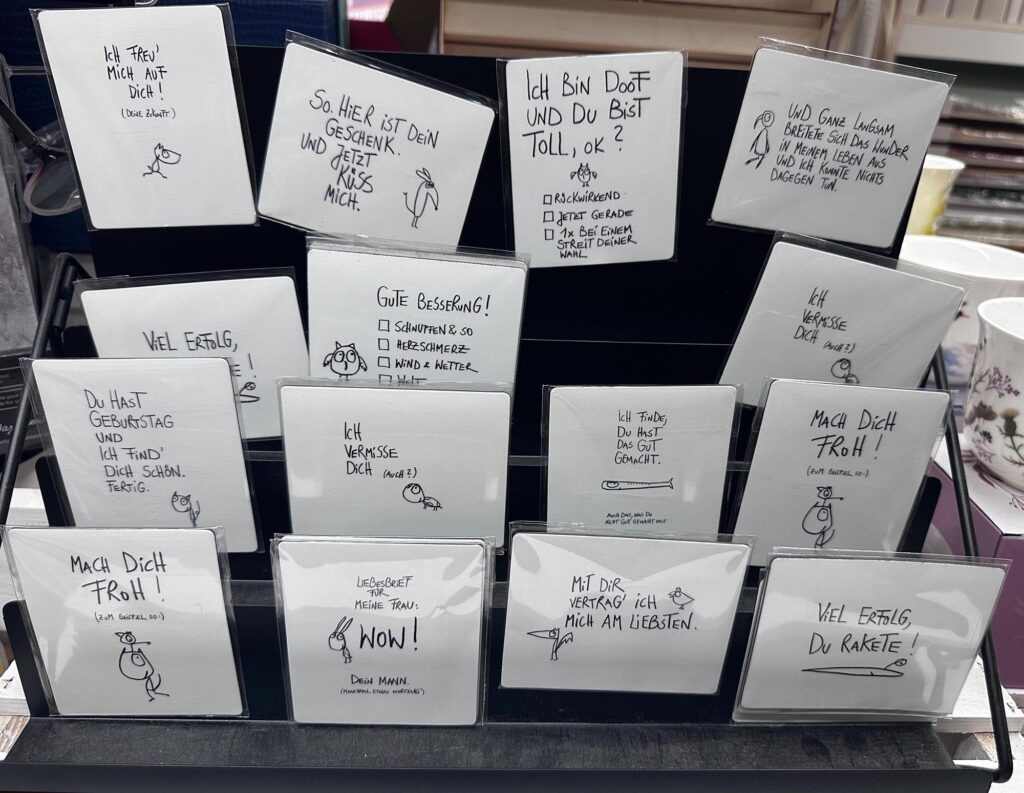 ICH FREU'
MICH AUF
DICH!
(DEINE ZUKUNFT.)
SO. HIER IST DEIN
GESCHENK.
UND JETZT
KÜSS
MICH.
ICH BIN DOOF
UND DU BIST
TOLL, OK?
RÜCKWIRKEND
JETZT GERADE
1X BEI EINEM
STREIT DEINER
WAHL
UND GANZ LANGSAM
BREITETE SICH DAS WUNDER
IN MEINEM LEBEN AUS
UND ICH KONNTE NICHTS
DAGEGEN TUN.
VIEL ERFOLG,
!
GUTE BESSERUNG!
SCHNUPFEN & SO
HERZSCHMERZ
WIND & WETTER
WELT
ICH
VERMISSE
DICH (AUCH?)
DU HAST
GEBURTSTAG
UND
ICH FIND'
DICH SCHÖN.
FERTIG.
ICH
VERMISSE
DICH (AUCH?)
ICH FINDE,
DU HAST
DAS GUT
GEMACHT.
AUCH DAS, WAS DU
NICHT GUT GEMACHT HAST.
MACH DICH
FROH!
(ZUM BEISPIEL SO:)
MACH DICH
FROH!
(ZUM BEISPIEL SO:)
LIEBESBRIEF
FÜR
MEINE FRAU:
WOW!
DEIN MANN.
(MANCHMAL ETWAS WORTKARG)
MIT DIR
VERTRAG' ICH
MICH AM LIEBSTEN.
VIEL ERFOLG,
DU RAKETE!